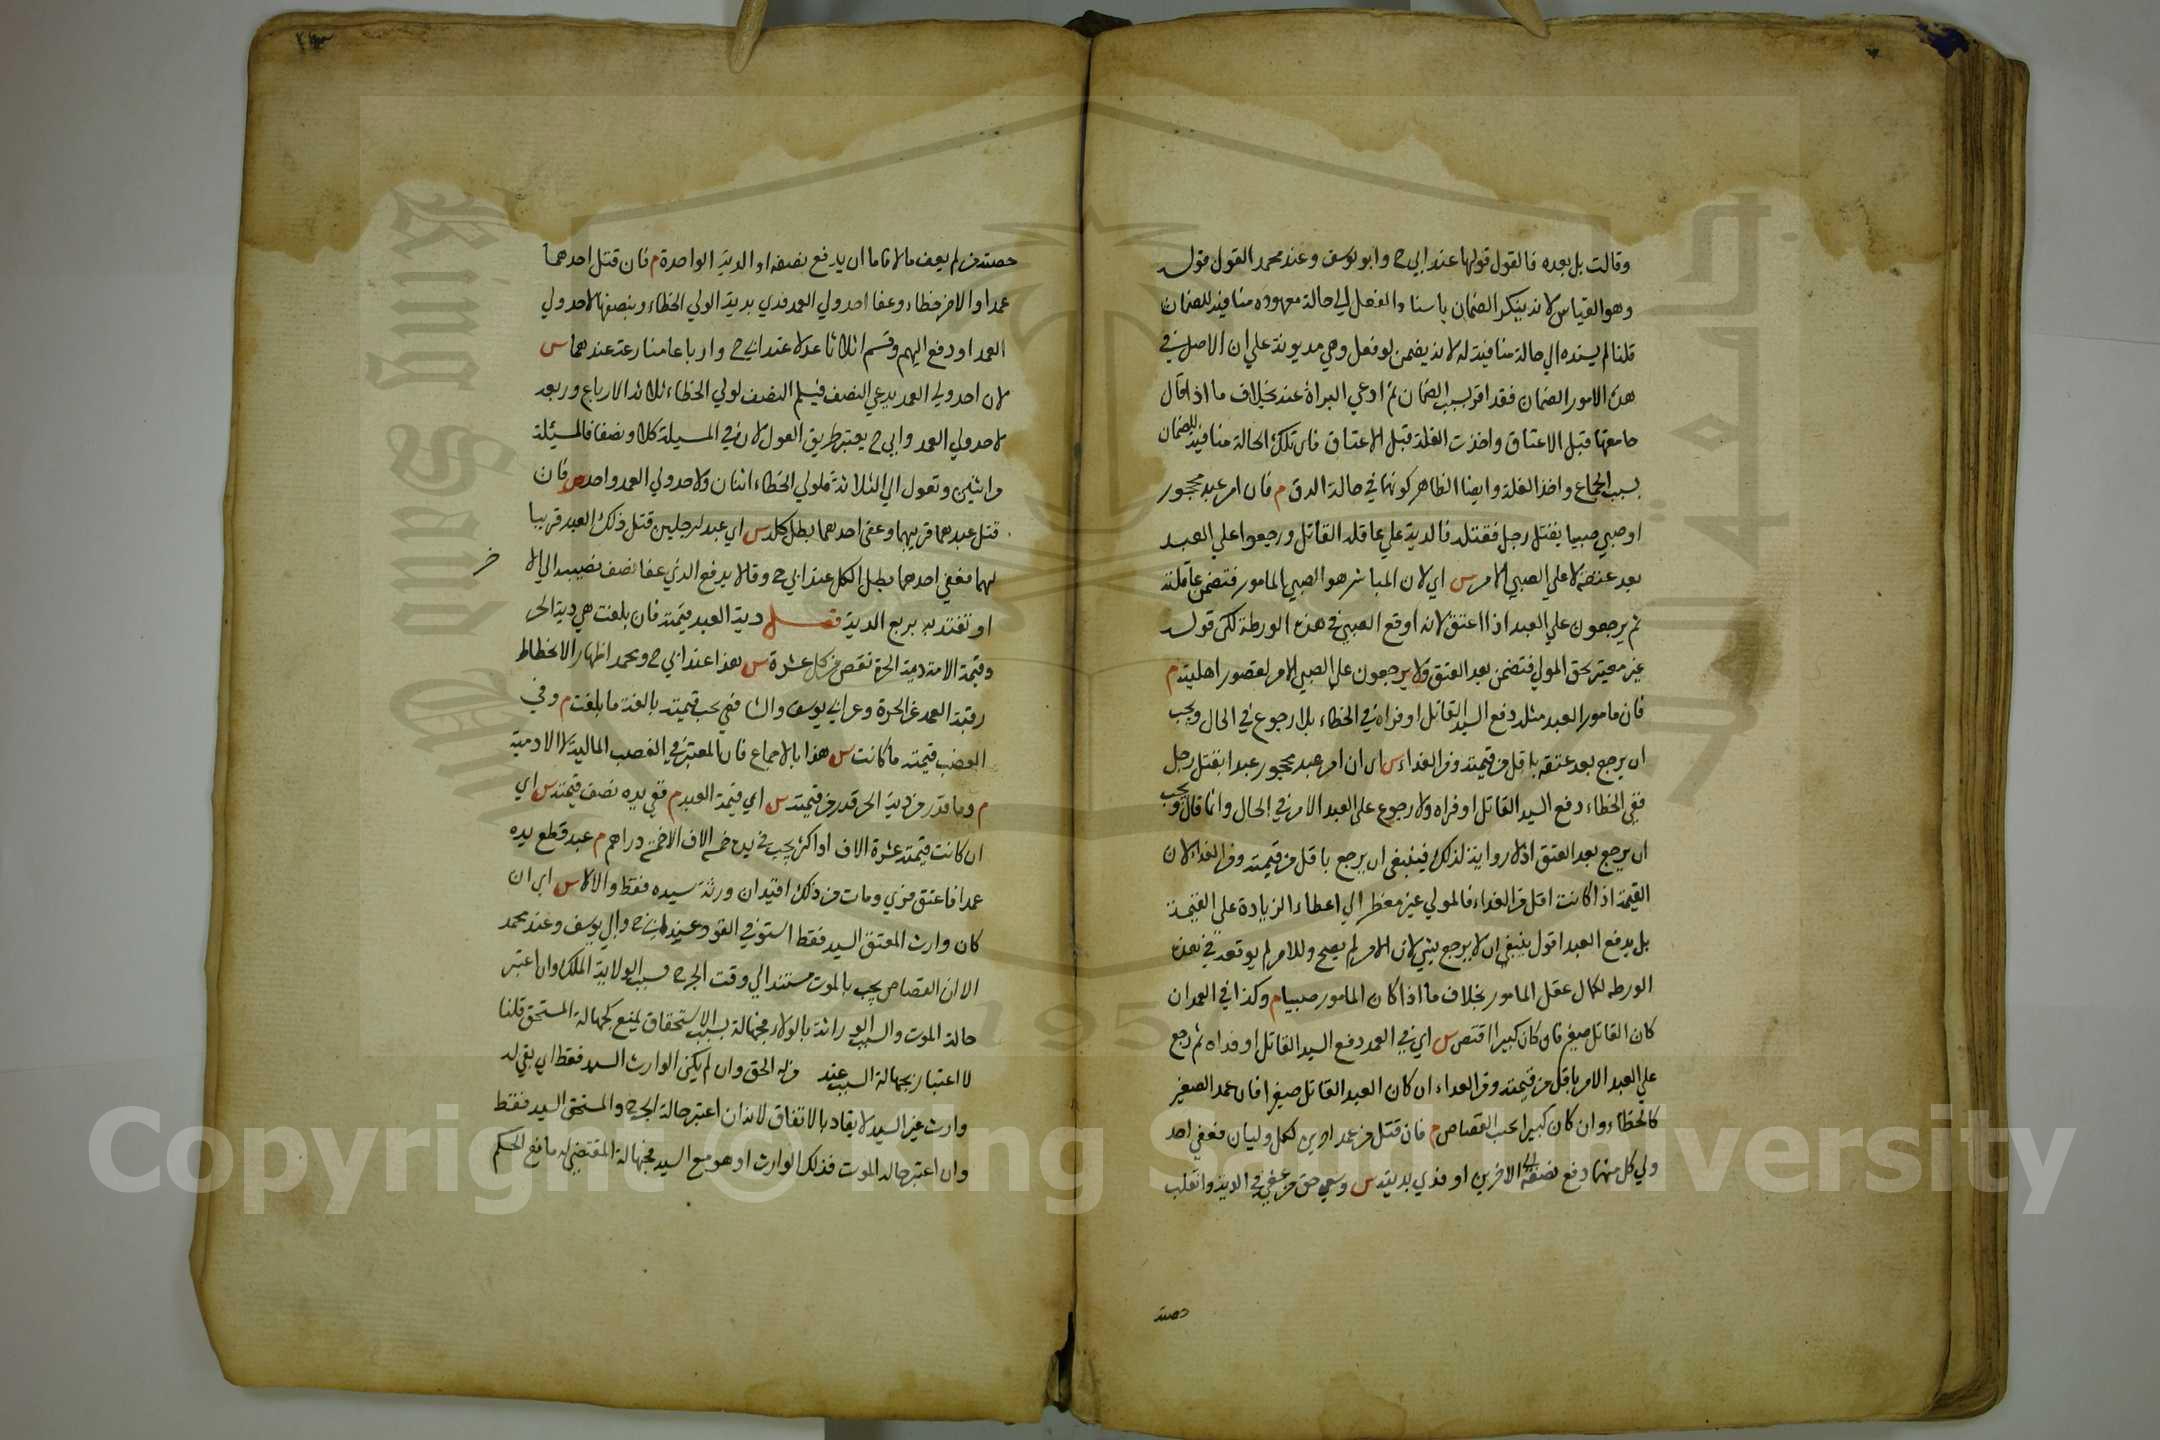 وقالت بل بعده فالقول قولها عند ابي ح وابو يوسف وعند محمد القول قوله
وهو القياس لانه ينكر الضمان باسناد الفعل الي حالة معهودة منافية للضمان
قلنا لم يسنده الي حالة منافية له لانه يضمن لو فعل وهي مديونة علي ان الاصل في
هذه الامور الضمان فقد اقر بسبب الضمان ثم ادعي البراة عنه بخلاف ما اذا قال
جامعتها قبل الاعتاق واخذت الغلة قبل الاعتاق فان تلك الحالة منافية للضمان
بسبب الجماع واخذ الغلة وايضا الظاهر كونها في حالة الرق م فان امر عبد محجور
او صبي صبيا يقتل رجل فقتله فالدية علي عاقلة القاتل ورجعوا علي العبد
بعد عتقه لا علي الصبي الامر س اي لان المباشر هو الصبي المامور فتضمن عاقلته
ثم يرجعون علي العبد اذا اعتق لانه اوقع الصبي في هذه الورطة لكن قوله
غير معتبر لحق المولي فتضمن بعد العتق ولا يرجعون علي الصبي الامر لقصور اهليته م
فان مامور العبد مثله دفع السيد القاتل او فداه في الخطاء بلا رجوع في الحال ويجب
ان يرجع بعد عتقه باقل من قيمته ومن الفداء س اي ان امر عبد محجور عبدا بقتل رجل
ففي الخطاء دفع السيد القاتل او فداه ولا رجوع علي العبد الامر في الحال وانما قال ويجب
ان يرجع بعد العتق اذ لا رواية لذلك فينبغي ان يرجع باقل من قيمته ومن الفداء لان
القيمة اذا كانت اقل من الفداء فالمولي غير مضطر الي اعطاء الزيادة علي القيمة
بل يدفع العبد اقول ينبغي ان لا يرجع بشي لان الامر لم يصح والامر لم يوقعه في هذه
الورطه لكمال عقل المامور بخلاف ما اذا كان المامور صبيا م وكذا في العمد ان
كان القاتل صغير فان كان كبيرا اقتص س اي في العمد دفع السيد القاتل او فداه ثم رجع
علي العبد الامر باقل من قيمته ومن الفداء ان كان العبد القاتل صغيرا فان عمد الصغير
كالخطاء وان كان كبيرا يجب القصاص م فان قتل قن عمدا حرين لكل وليان فعفي احد
ولي كل منهما دفع نصفه الي الاخرين او فدي بدية س وسقط حق من عفي في الدية وانقلب
حصته
حصته من لم يعف مالا فاما ان يدفع نصفه او الدية الواحدة م فان قتل احدهما
عمدا والاخر خطاء وعفا احد ولي العمد فدي بدية لولي الخطاء وبنصفها لاحد ولي
العمد او دفع اليهم وقسم اثلاثا عولا عند ابي ح وارباعا منازعة عندهما س
لان احد ولي العمد يدعي النصف فيسلم النصف لولي الخطاء ثلاثة الارباع وربعه
لاحد ولي العمد وابي ح يعتبر طريق العول لان في المسيلة كلا ونصفا فالمسئلة
من اثنين وتعول الي الثلاثة فلولي الخطاء اثنان ولاحد ولي العمد واحد م فان
قتل عبدهما قريبهما وعفي احدهما بطل كله س اي عبد لرجلين قتل ذلك العبد قريبا
لهما فعفي احدهما بطل الكل عند ابي ح وقالا يدفع الذي عفا نصف نصيبه الي الاخر
او تفتديه بربع الدية فصل دية العبد قيمته فان بلغت هي دية الحر
وقيمة الامة دية الحرة نقص من كل عشرة س هذا عند ابي ح ومحمد اظهار الانحطاط
رقبة العبد عن الحرة وعن ابي يوسف والشافعي يجب قيمته بالغة ما بلغت م وفي
الغصب قيمته ما كانت س هذا بالاجماع فان المعتبر في الغصب المالية لا الادمية
م وما قدر من دية الحر قدر من قيمته س اي قيمة العبد م ففي يده نصف قيمته س اي
ان كانت قيمته عشرة الاف او اكثر يجب في يده خمسة الاف الا خمسة دراهم م عبد قطع يده
عمدا فاعتق فسري ومات من ذلك اقيد ان ورثه سيده فقط والا لا س اي ان
كان وارث المعتق السيد فقط استوفي القود عند ابي ح وابي يوسف وعند محمد
لا لان القصاص يجب بالموت مستندا الي وقت الجرح فسبب الولاية الملك وان اعتبر
حالة الموت والسبب الوراثة بالولاء فجهالة بسبب الاستحقاق يمنع كجهالة المستحق قلنا
لا اعتبار بجهالة السبب عند من له الحق وان لم يكن الوارث السيد فقط اي بقي له
وارث غير السيد لا يقاد بالاتفاق لانه ان اعتبر حالة الجرح والمستحق السيد فقط
وان اعتبر حالة الموت فذلك الوارث او هو مع السيد فجهالة المقتضي له مانع الحكم